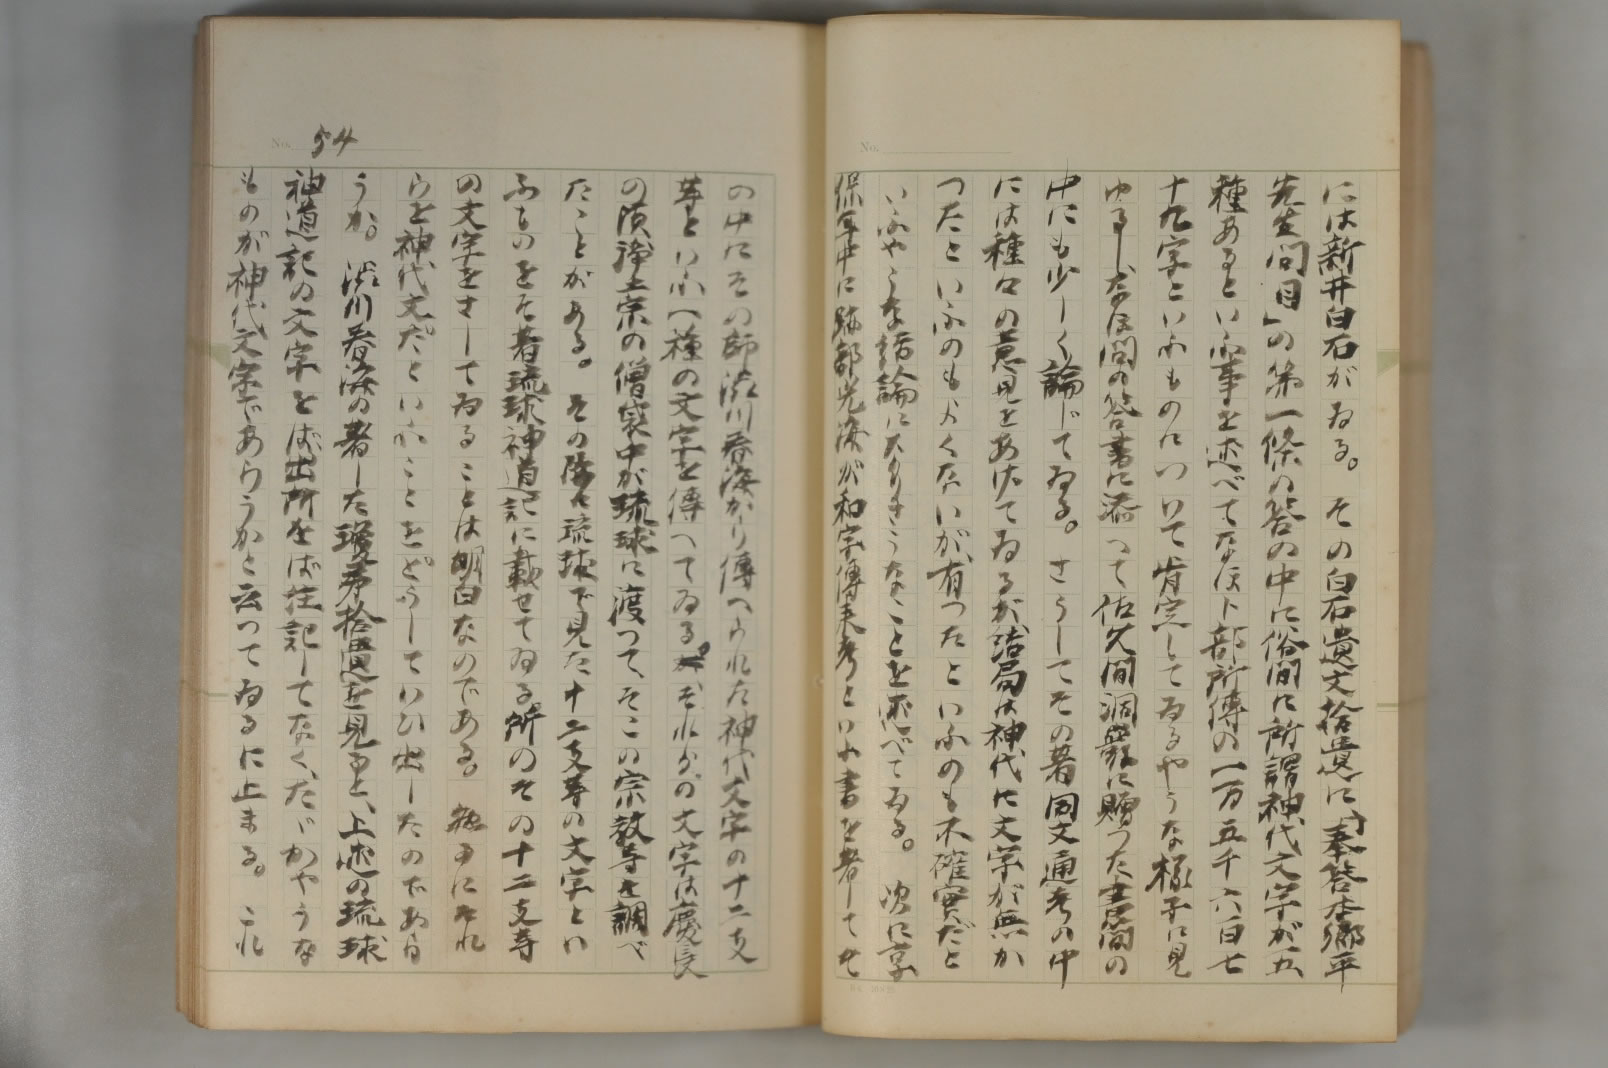 には新井白石がゐる。その白石遺文拾遺に、「奉答本郷平
先生問目」の第一條の答の中に俗間に所謂神代文字が五
種あるといふ事を述べてなほ卜部所傳の一万五千六百七
十九字といふものについて肯定してゐるやうな様子に見
ゆるしなほ問の答書に添つて佐久間洞巖に贈つた書簡の
中にも少しく論じてゐる。さうしてその著同文通考の中
には種々の意見をあげてゐるが結局は神代に文字が無か
つたといふのもよくないが、有つたといふのも不確實だと
いふやうな結論になりさうなことを述べてゐる。次に享
保年中に跡部光海が和字傳来考といふ書を著してそ
No. 54
の中にその師澁川春海から傳へられた神代文字の十二支
等といふ一種の文字を傳へてゐるがそれらの文字は慶長
の頃淨土宗の僧袋中が琉球に渡つて、そこの宗教等を調べ
たことがある。その際に琉球で見た十二支等の文字とい
ふものをその著琉球神道記に載せてゐる所のその十二支等
の文字をさしてゐることは明白なのである。然るにそれ
らを神代文だといふことをどうしていひ出したのであら
うか。澁川春海の著した瓊矛拾遺を見ると、上述の琉球
神道記の文字をば出所をば註記してなく、たゞかやうな
ものが神代文字であらうかと云つてゐるに止まる。これ